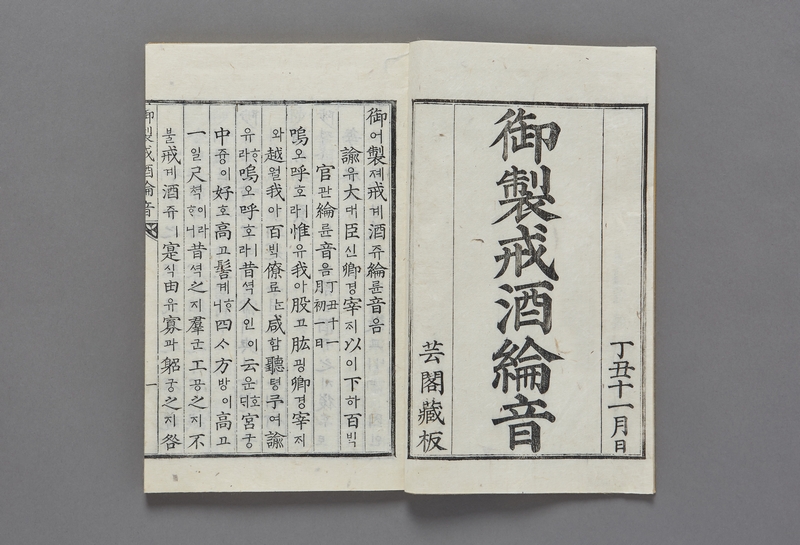 丁丑十一月日
御製戒酒綸音
芸閣藏板
御어製졔戒계酒쥬綸륜音음
諭유大대臣신卿경宰ᄌᆡ以이下하百ᄇᆡᆨ
官관綸륜音음丁丑十一月初一日
嗚오呼호ㅣ라惟유我아股고肱굉卿경宰ᄌᆡ
와越월我아百ᄇᆡᆨ僚료ᄂᆞᆫ咸함聽텽予여諭
유ᄒᆞ라嗚오呼호ㅣ라昔셕人인이云운호ᄃᆡ宮궁
中즁이好호高고髻계ᄒᆞ니四ᄉᆞ方방이高고
一일尺쳑이라ᄒᆞ니昔셕之지羣군工공之지不
블戒계酒쥬ㅣ寔식由유寡과躬궁之지咎
御製戒酒綸音
一